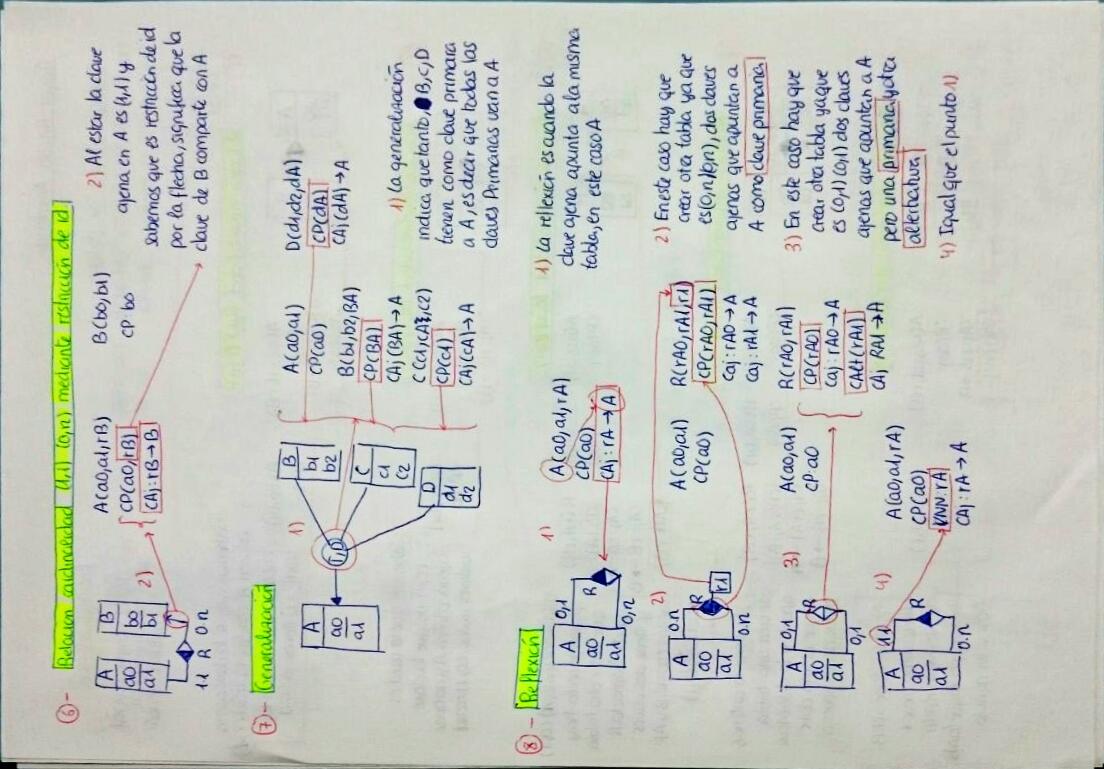 6- Relación cardinalidad (1,1) (0,n) mediante restricción de id
A
a0
a1
B
b0
b1
1.1
R
0.n
2)
A(a0,a1,rB)
CP(a0,rB)
CAj: rB → B
B(b0,b1)
CP b0
2) Al estar la clave
ajena en A es (1,1) y
sabemos que es restricción de id
por la flecha, significa que la
clave de B comparte con A
7- Generalización
A
a0
a1
1)
B
b1
b2
C
c1
c2
D
d1
d2
A(a0,a1)
CP(a0)
B(b1,b2,BA)
CP(BA)
CAj(BA) → A
CP(cA)
CAj(cA) → A
D(d1,d2,dA)
CP(dA)
CAj(dA) → A
1) La generalización
indica que tanto, B,C,D
tienen como clave primaria
a A, es decir que todas las
claves Primarias van a A
8- Reflexión
A
a0
a1
0,1
R
0,n
1)
A(a0,a1,rA)
CP(a0)
CAj: rA → A
1) La reflexión es cuando la
clave ajena apunta a la misma
tabla, en este caso A
2)
A
a0
a1
0.n
R
r1
0.n
A(a0,a1)
CP(a0)
R(rA0,rA1,r1)
CP(rA0,rA1)
Caj: rA0 → A
Caj: rA1 → A
2) En este caso hay que
crear otra tabla ya que
es (0,n) (0,n), dos claves
ajenas que apuntan a
A como clave primaria
3)
A
a0
a1
0,1
R
0,1
A(a0,a1)
CP a0
R(rA0,rA1)
CP(rA0)
Caj: rA0 → A
CAlt(rA1)
CAj RA1 → A
3) En este caso hay que
crear otra tabla ya que
es (0,1) (0,1) dos claves
ajenas que apuntan a A
pero una primaria y otra
alterbatura
4)
A
a0
a1
1.1
R
0.n
A(a0,a1,rA)
CP(a0)
VNN: rA
CAj: rA → A
4) Igual que el punto 1)